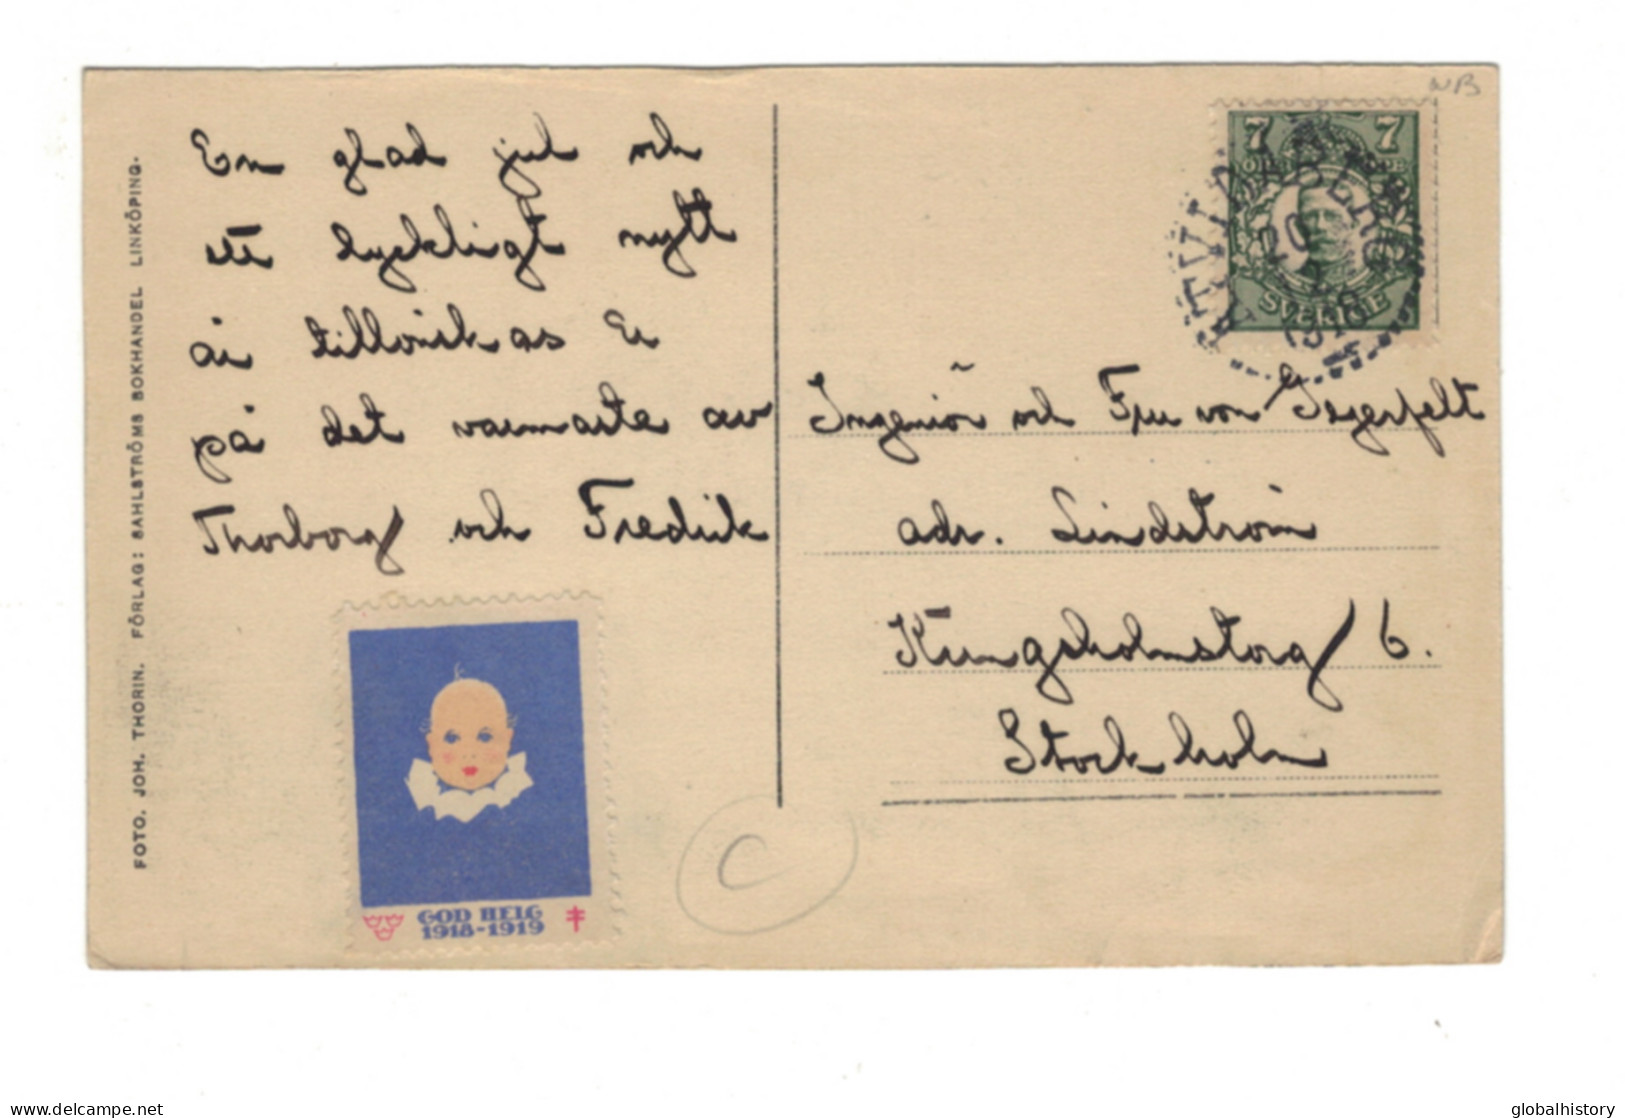 FOTO. JOH. THORIN. FÖRLAG: SAHLSTRÖMS BOKHANDEL LINKÖPING.
En glad jul och
ett lyckligt nytt
år tillönskas Er
på det varmaste av
Thorborg och Fredrik
GOD HELG
1918-1919
NB
7 7
SVERIGE
ÅTVIDABERG
20
1918
Ingeniör och Fru von Segerfelt
adr. Lindström
Kungsholmstorg 6.
Stockholm
C
globalhistory
www.delcampe.net